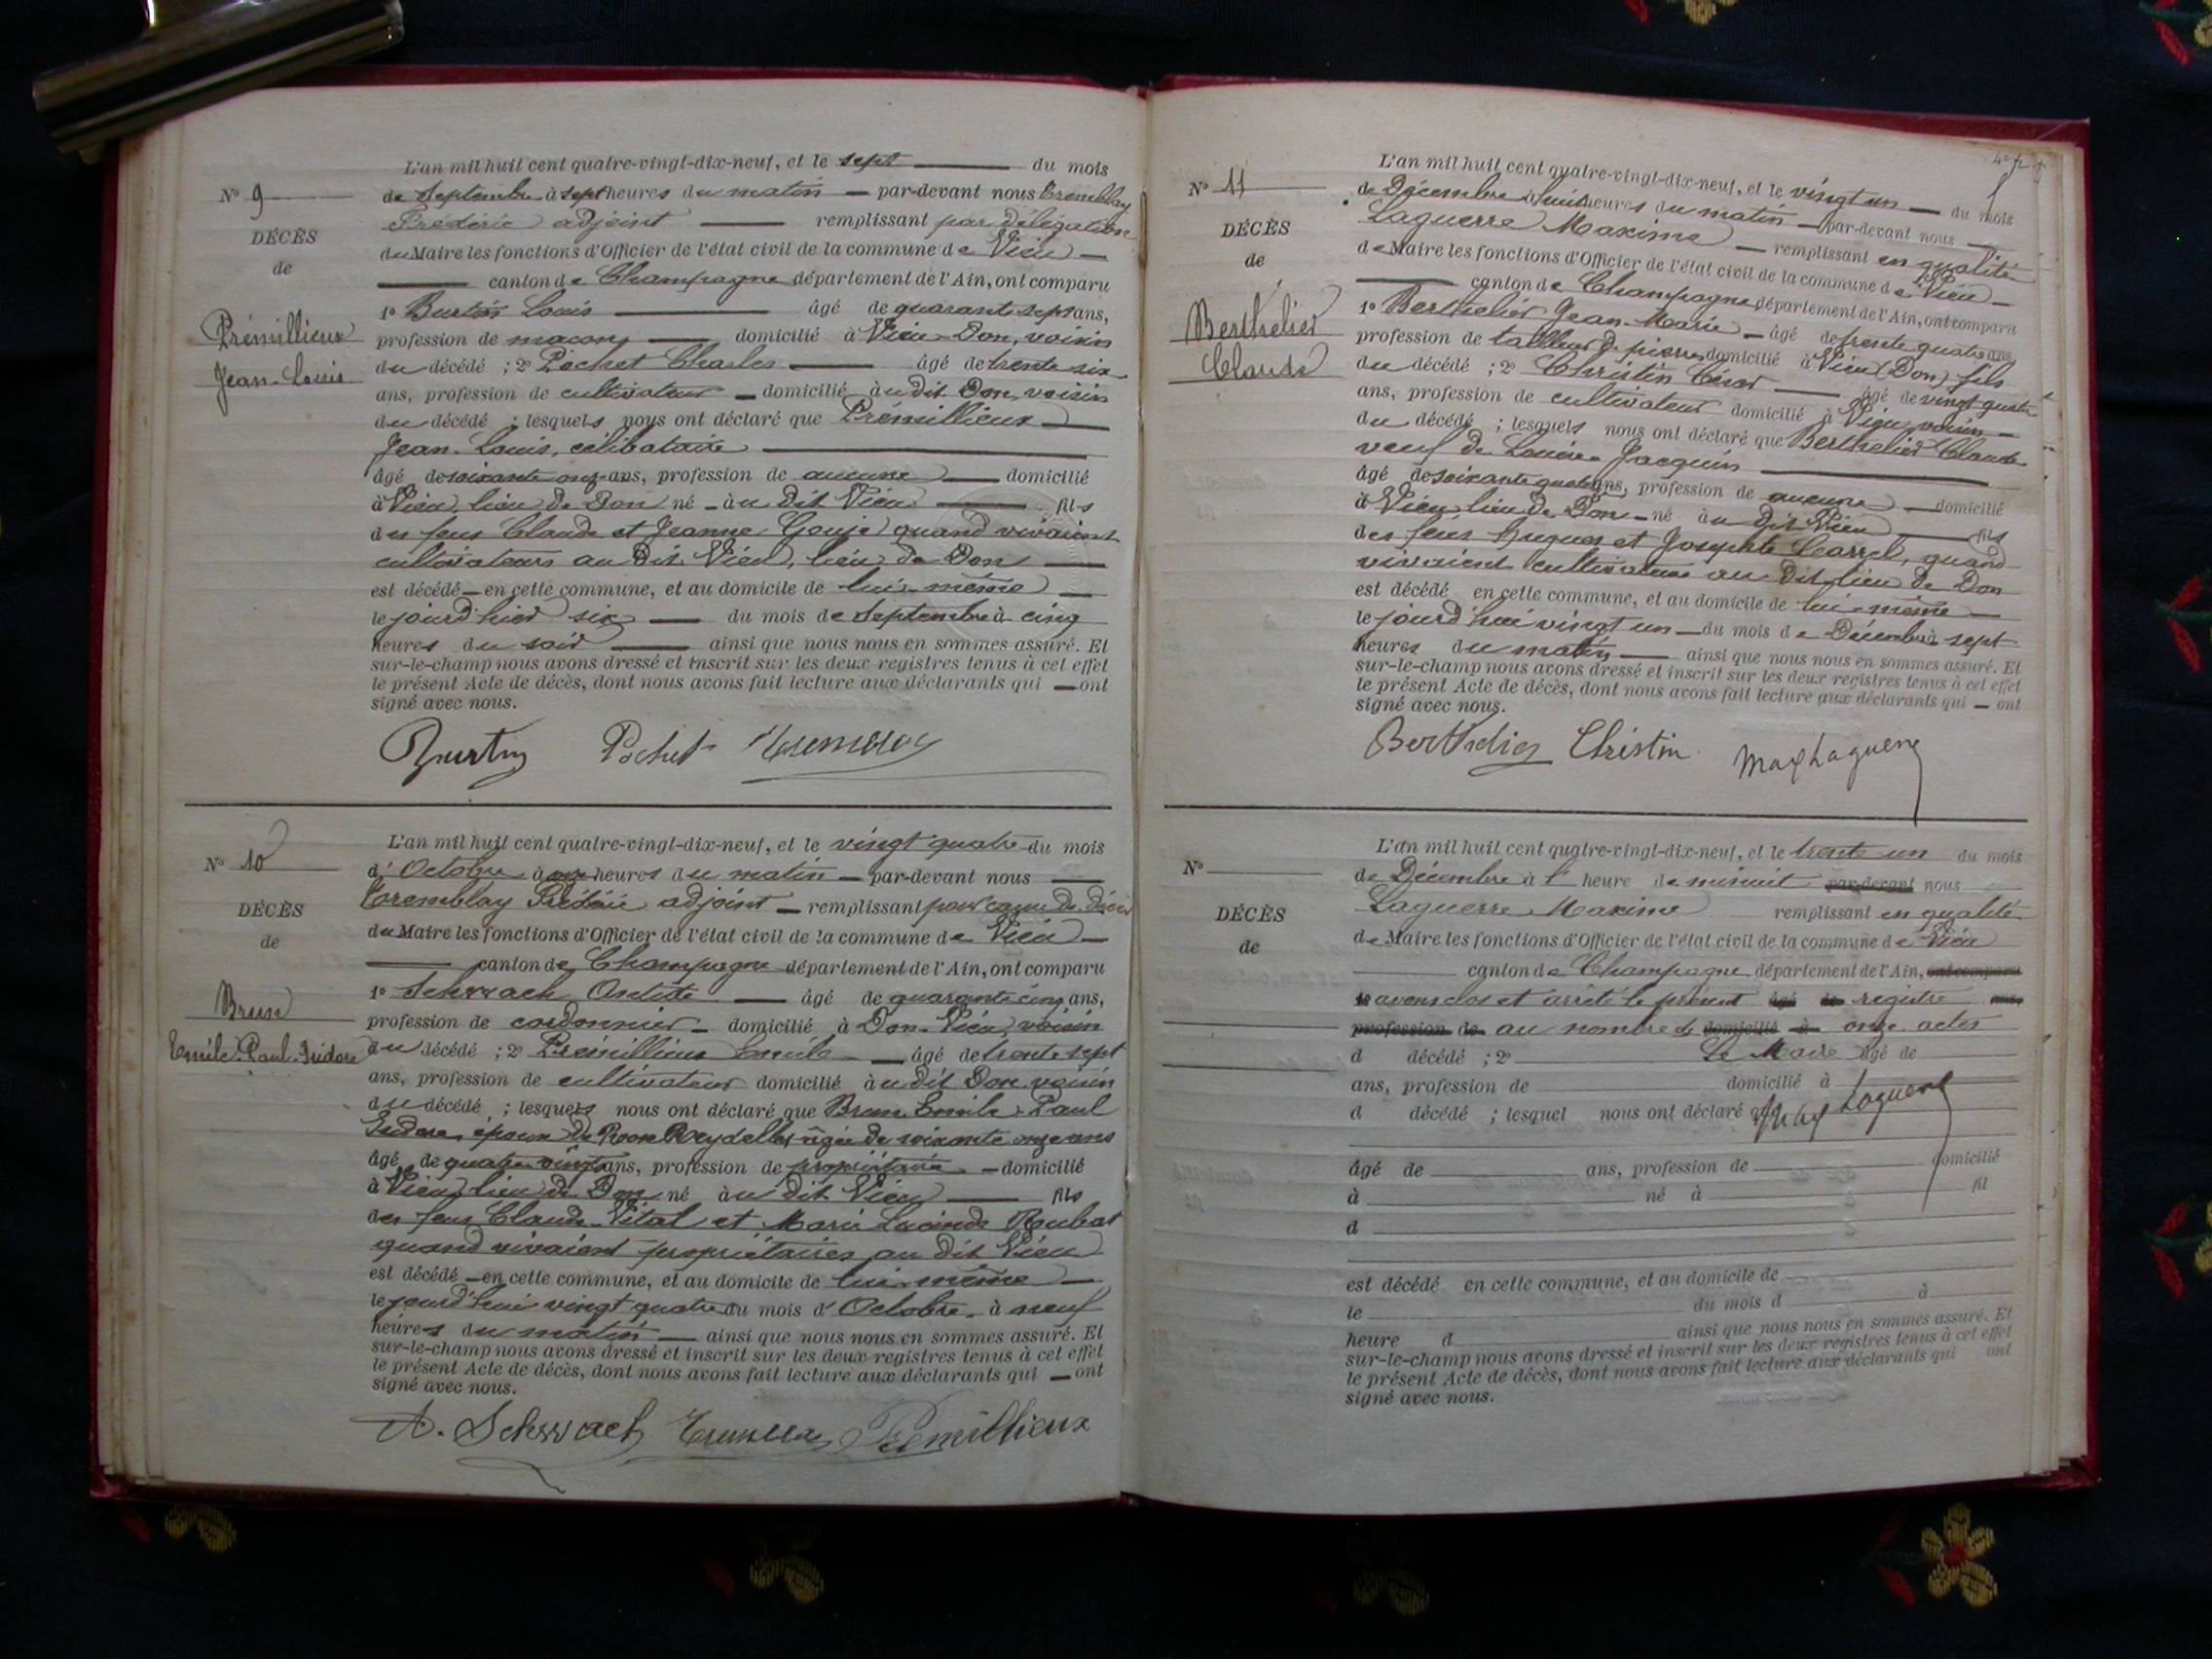 L'an mil huit cent quatre-vingt-dix-neuf, et le sept du mois
N° 9
de Septembre à sept heures du matin par-devant nous Tremblay
Frédéric adjoint remplissant par délégation
DÉCÈS
du Maire les fonctions d'Officier de l'état civil de la commune de Vieu
de
canton de Champagne département de l'Ain, ont comparu
1° Burtin Louis âgé de quarante sept ans,
Prémillieux
profession de maçon domicilié à Vieu-Don, voisin
Jean-Louis
du décédé ; 2° Pochet Charles âgé de trente six
ans, profession de cultivateur domicilié au dit Don, voisin
du décédé ; lesquels nous ont déclaré que Prémillieux
Jean-Louis, célibataire
âgé de soixante onze ans, profession de aucune domicilié
à Vieu, lieu de Don né au dit Vieu fils
des feus Claude et Jeanne Gouje quand vivaient
cultivateurs au dit Vieu, lieu de Don
est décédé en cette commune, et au domicile de lui-même
le jourd'hier six du mois de Septembre à cinq
heures du soir ainsi que nous nous en sommes assuré. Et
sur-le-champ nous avons dressé et inscrit sur les deux registres tenus à cet effet
le présent Acte de décès, dont nous avons fait lecture aux déclarants qui ont
signé avec nous.
Burtin Pochet
L'an mil huit cent quatre-vingt-dix-neuf, et le vingt quatre du mois
N° 10
d'Octobre à onze heures du matin par-devant nous
Tremblay Frédéric adjoint remplissant pour cause de décès
DÉCÈS
du Maire les fonctions d'Officier de l'état civil de la commune de Vieu
de
canton de Champagne département de l'Ain, ont comparu
1° Schwach âgé de quarante cinq ans,
Brun
profession de cordonnier domicilié à Don-Vieu, voisin
Emile-Paul-Isidore
du décédé ; 2° Prémillieux Emile âgé de trente sept
ans, profession de cultivateur domicilié au dit Don voisin
du décédé ; lesquels nous ont déclaré que Brun Emile-Paul
Isidore, époux de Reydellet âgée de soixante onze ans
âgé de quatre vingt ans, profession de propriétaire domicilié
à Vieu, lieu de Don né au dit Vieu fils
des feus Claude-Vital et Marie Lucinde Roubat
quand vivaient propriétaires au dit Vieu
est décédé en cette commune, et au domicile de lui-même
le jourd'hui vingt quatre du mois d'Octobre à neuf
heures du matin ainsi que nous nous en sommes assuré. Et
sur-le-champ nous avons dressé et inscrit sur les deux registres tenus à cet effet
le présent Acte de décès, dont nous avons fait lecture aux déclarants qui ont
signé avec nous.
A. Schwach Prémillieux
L'an mil huit cent quatre-vingt-dix-neuf, et le vingt un du mois
N° 11
de Décembre à huit heures du matin par-devant nous
Laguerre Maxime remplissant en qualité
DÉCÈS
de Maire les fonctions d'Officier de l'état civil de la commune de Vieu
de
canton de Champagne département de l'Ain, ont comparu
1° Berthelier Jean-Marie âgé de trente quatre ans,
Berthelier
profession de tailleur de pierres domicilié à Vieu (Don) fils
Claude
du décédé ; 2° Christin César âgé de vingt quatre
ans, profession de cultivateur domicilié à Vieu, voisin
du décédé ; lesquels nous ont déclaré que Berthelier Claude
veuf de Louise Jacquin
âgé de soixante quatre ans, profession de aucune domicilié
à Vieu, lieu de Don né au dit Vieu fils
des feus Hugues et Josephte Carrel, quand
vivaient cultivateurs au dit lieu de Don
est décédé en cette commune, et au domicile de lui-même
le jourd'hui vingt un du mois de Décembre à sept
heures du matin ainsi que nous nous en sommes assuré. Et
sur-le-champ nous avons dressé et inscrit sur les deux registres tenus à cet effet
le présent Acte de décès, dont nous avons fait lecture aux déclarants qui ont
signé avec nous.
Berthelier Christin Max Laguerre
L'an mil huit cent quatre-vingt-dix-neuf, et le trente un du mois
N°
de Décembre à l' heure de minuit par-devant nous
Laguerre Maxime remplissant en qualité
DÉCÈS
de Maire les fonctions d'Officier de l'état civil de la commune de Vieu
de
canton de Champagne département de l'Ain, ont comparu
avons clos et arrêté le présent âgé de registre ans,
profession de au nombre de domicilié à onze actes
d décédé ; 2° Le Maire âgé de
ans, profession de domicilié à
d décédé ; lesquel nous ont déclaré que Max Laguerre
âgé de ans, profession de domicilié
à né à fil
d
est décédé en cette commune, et au domicile de
le du mois d à
heure d ainsi que nous nous en sommes assuré. Et
sur-le-champ nous avons dressé et inscrit sur les deux registres tenus à cet effet
le présent Acte de décès, dont nous avons fait lecture aux déclarants qui ont
signé avec nous.